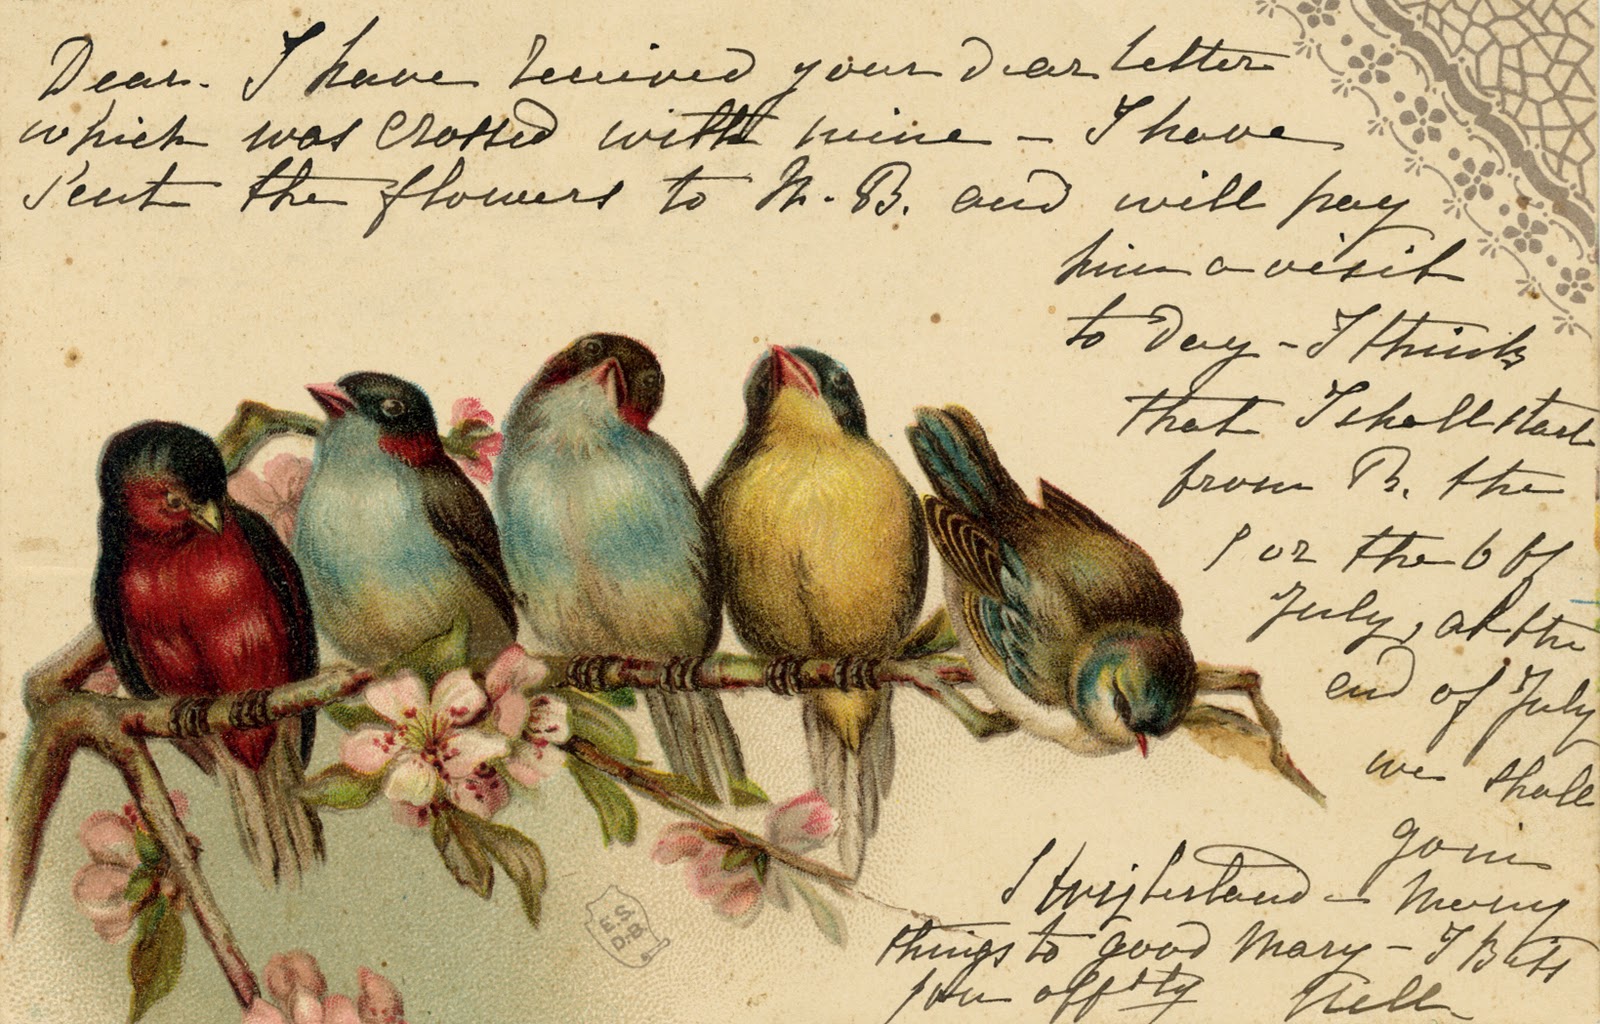 Dear. I have received your dear letter
which was crossed with mine – I have
sent the flowers to M. B. and will pay
him a visit
to day – I think
that I shall start
from B. the
5 or the 6 of
July, at the
end of July
we shall
join
many
things to good Mary – I
your Nell
SB
ED